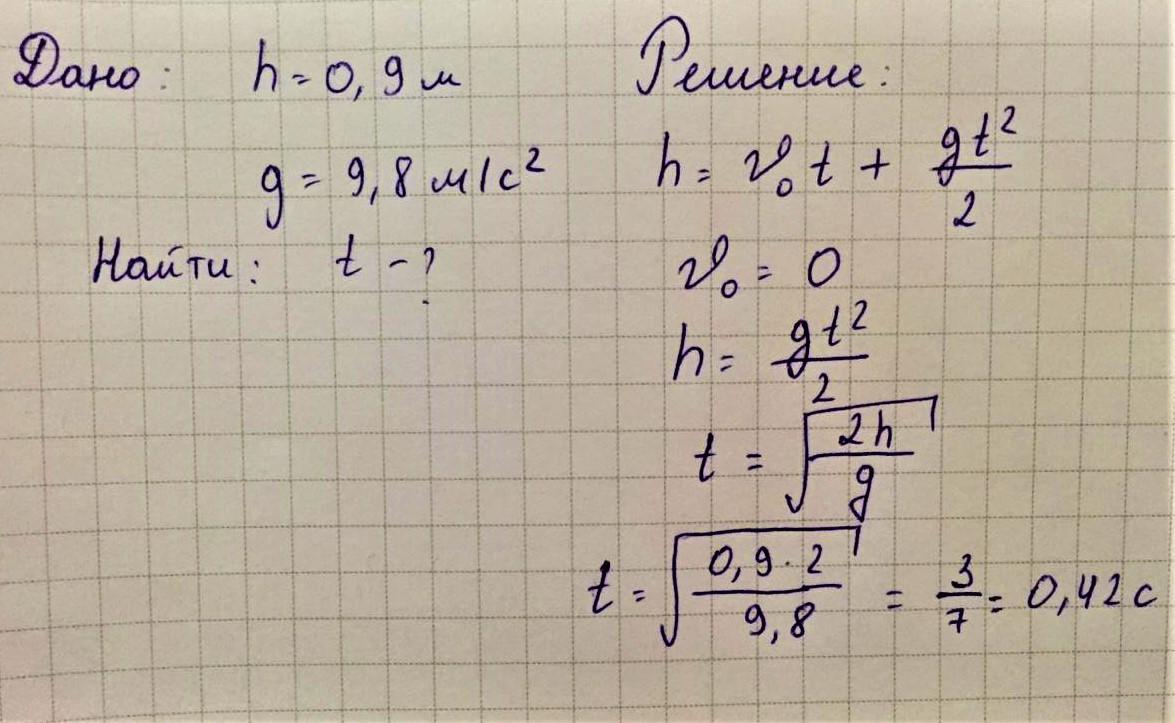 Дано: h = 0,9 м
g = 9,8 м/с²
Найти: t - ?
Решение:
h = v₀t + gt²/2
v₀ = 0
h = gt²/2
t = √(2h/g)
t = √(0,9·2/9,8) = 3/7 = 0,42 с